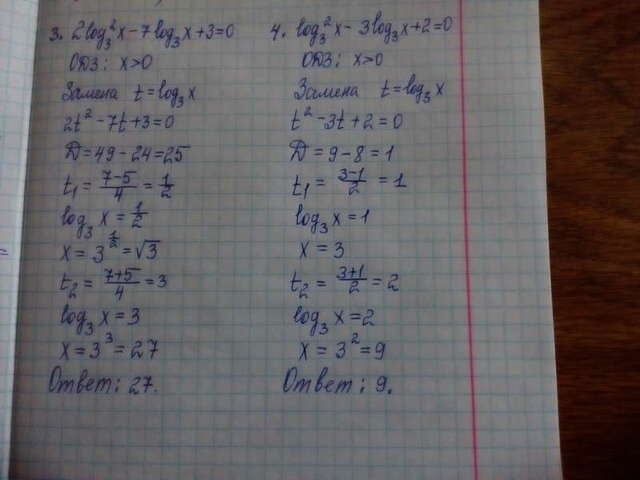 3. 2log₃²x-7log₃x+3=0
ОДЗ: x>0
Замена t=log₃x
2t²-7t+3=0
D=49-24=25
t₁=(7-5)/4=1/2
log₃x=1/2
x=3^(1/2)=√3
t₂=(7+5)/4=3
log₃x=3
x=3³=27
Ответ: 27.
4. log₃²x-3log₃x+2=0
ОДЗ: x>0
Замена t=log₃x
t²-3t+2=0
D=9-8=1
t₁=(3-1)/2=1
log₃x=1
x=3
t₂=(3+1)/2=2
log₃x=2
x=3²=9
Ответ: 9.